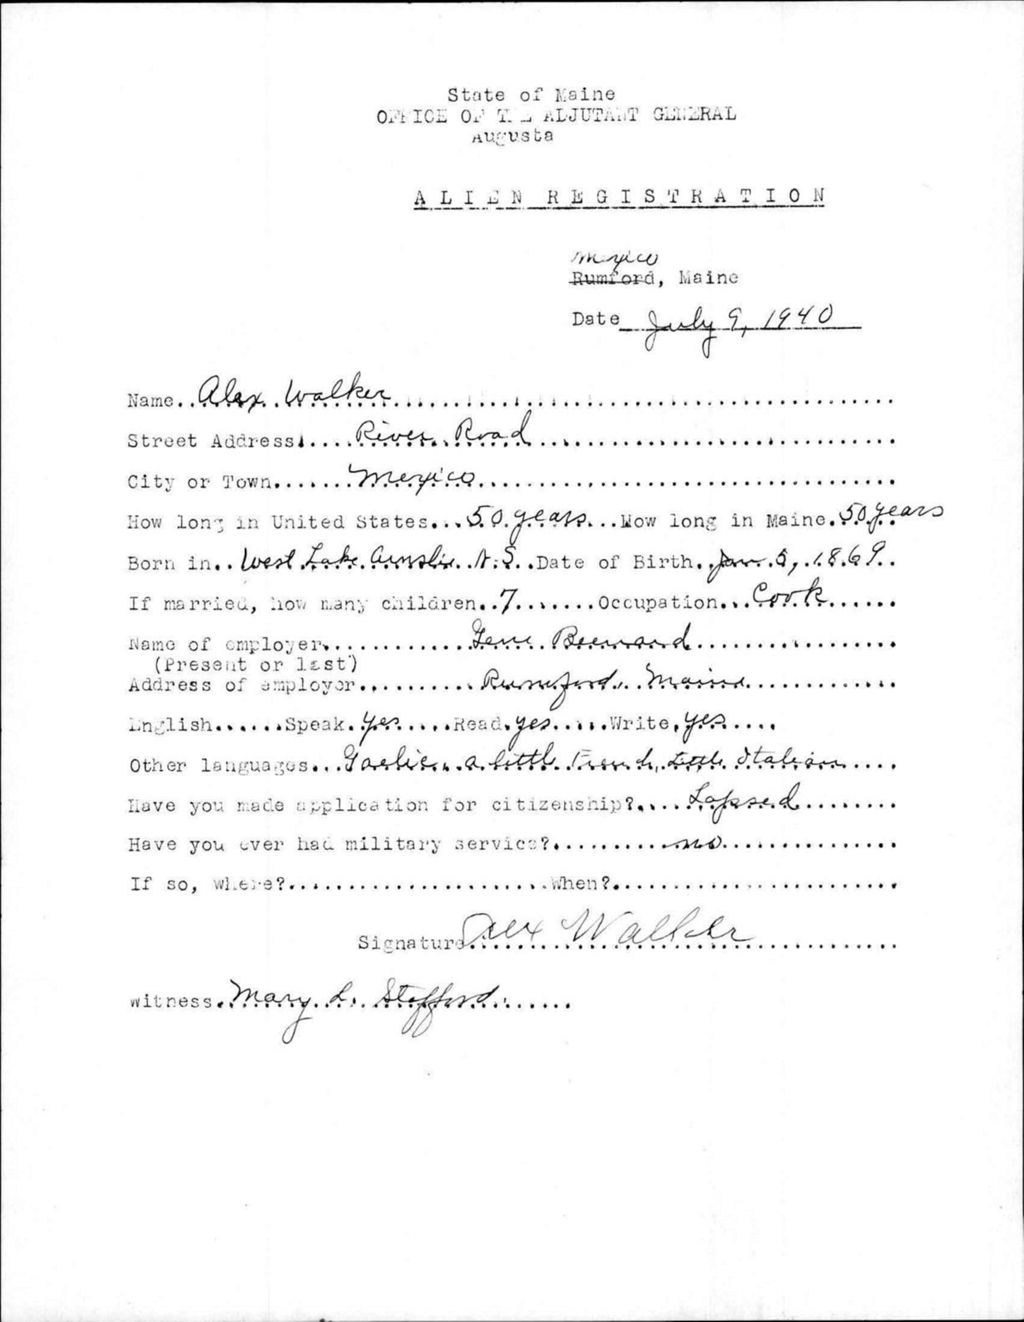 State of Maine
OFFICE OF THE ADJUTANT GENERAL
Augusta
ALIEN REGISTRATION
Mexico
Rumford, Maine
Date July 9, 1940
Name..Alex Walker
Street Address.....River Road
City or Town.......Mexico
How long in United States...50 years...How long in Maine.50 years
Born in..West Lake Ainslie..N.S..Date of Birth..Jan. 5, 1869..
If married, how many children..7.......Occupation...Cook......
Name of employer.............Gene Bernard
(Present or last)
Address of employer..........Rumford, Maine
English......Speak.yes.....Read.yes.....Write.yes....
Other languages...Gaelic, a little French, Little Italian....
Have you made application for citizenship?.....Lapsed........
Have you ever had military service?..........no...............
If so, where?......................When?........................
Signature Alex Walker
witness..Mary L. Stafford.......